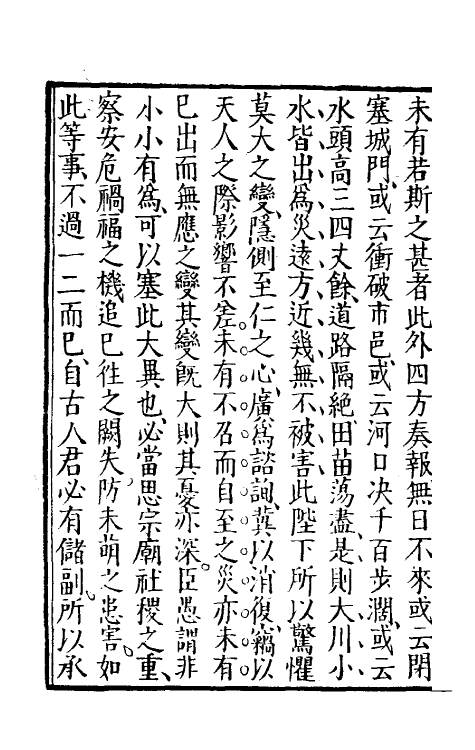 未有若斯之甚者此外四方奏報無日不來或云閉
塞城門、或云衝破市邑、或云河口决千百步濶、或云
水頭高三四丈餘、道路隔絶、田苗蕩盡、是則大川小
水皆出爲災遠方近畿無不被害此陛下所以驚懼
莫大之變、隱側至仁之心、廣爲諮詢、冀以消復、竊以
天人之際影響不差。未有不召而自至之災亦未有
已出而無應之變其變既大則其憂亦深。臣愚謂非
小小有爲、可以塞此大異也、必當思宗廟社稷之重、
察安危禍福之機、追已徃之闕失、防未萌之患害。如
此等事、不過一二而已、自古人君必有儲副、所以承